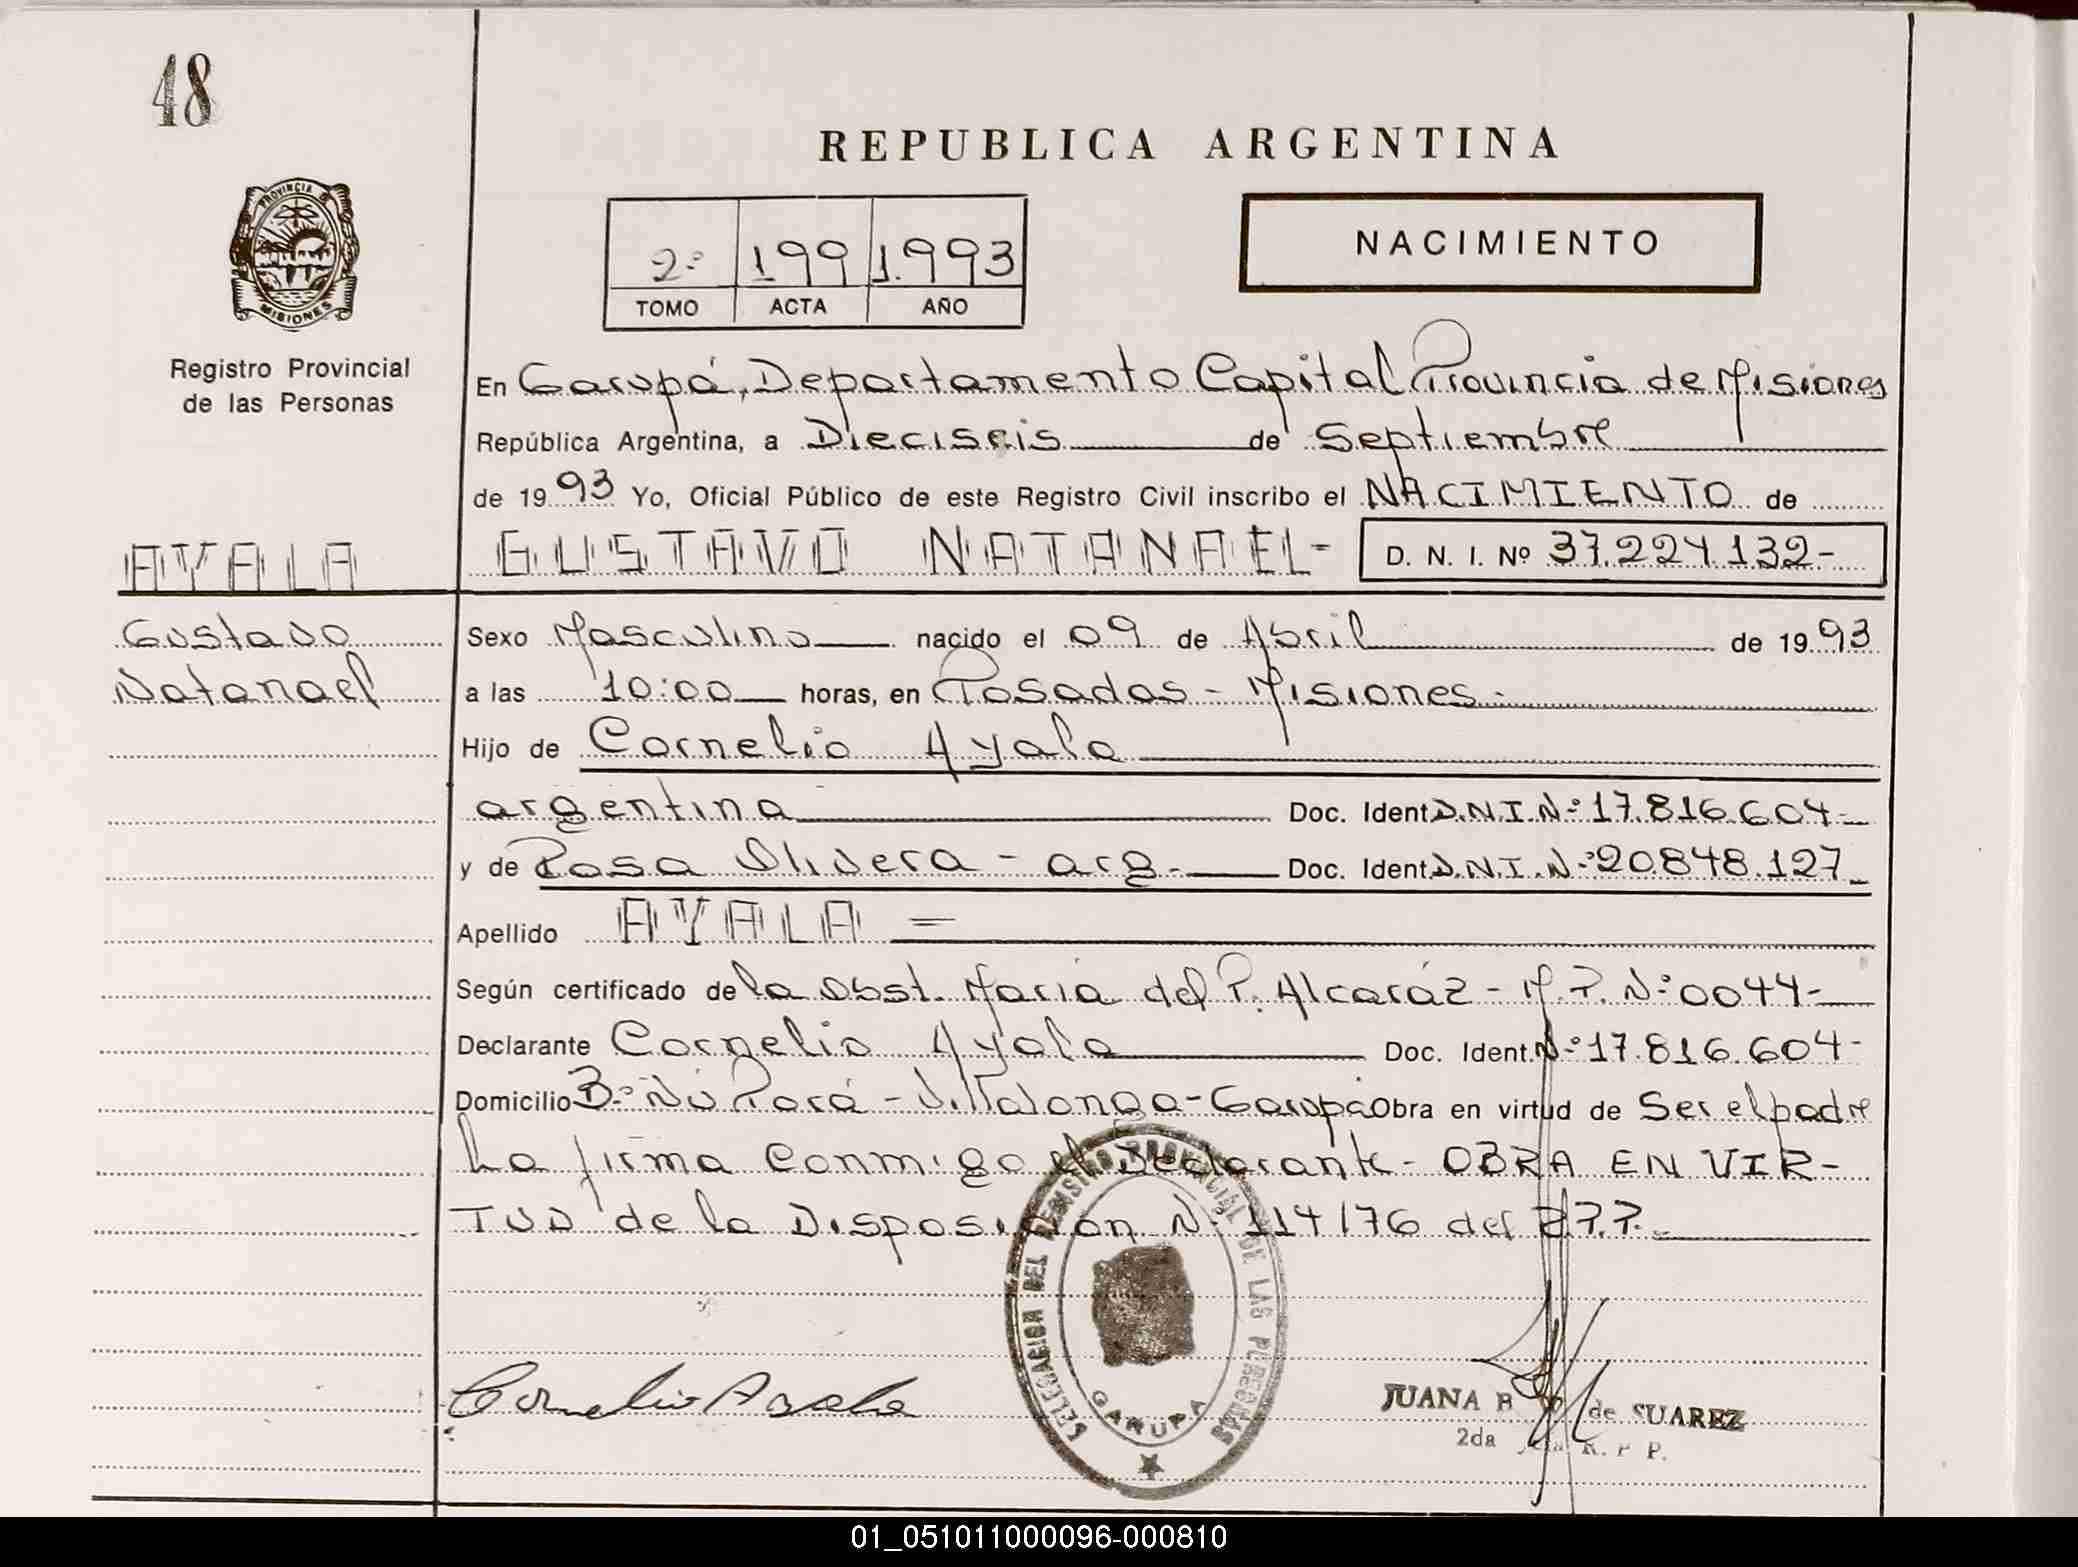 48
REPUBLICA ARGENTINA
PROVINCIA DE
MISIONES
2º 199 1.993
TOMO ACTA AÑO
NACIMIENTO
Registro Provincial
de las Personas
En Garupá, Departamento Capital Provincia de Misiones
República Argentina, a Dieciseis de Septiembre
de 1993 Yo, Oficial Público de este Registro Civil inscribo el NACIMIENTO de
AYALA GUSTAVO NATANAEL- D. N. I. Nº 37.224.132-
Gustavo Sexo Masculino nacido el 09 de Abril de 1993
Natanael a las 10:00 horas, en Posadas - Misiones-
Hijo de Cornelio Ayala
argentina Doc. Ident. D.N.I.Nº 17.816.604-
y de Rosa Olivera - arg. Doc. Ident. D.N.I.Nº 20.848.127-
Apellido AYALA =
Según certificado de la Obst. María del P. Alcaráz - M.P. Nº 0044-
Declarante Cornelio Ayala Doc. Ident. Nº 17.816.604-
Domicilio Bº Ñú Porá - Villalonga - Garupá Obra en virtud de Ser el padre
La firma Conmigo el Declarante - OBRA EN VIR-
TUD de la Disposición Nº 114/76 del R.P.P.-
DELEGACION DEL REGISTRO PROVINCIAL DE LAS PERSONAS
GARUPA
Cornelio Ayala
JUANA B de SUAREZ
2da R. P. P.
01_051011000096-000810